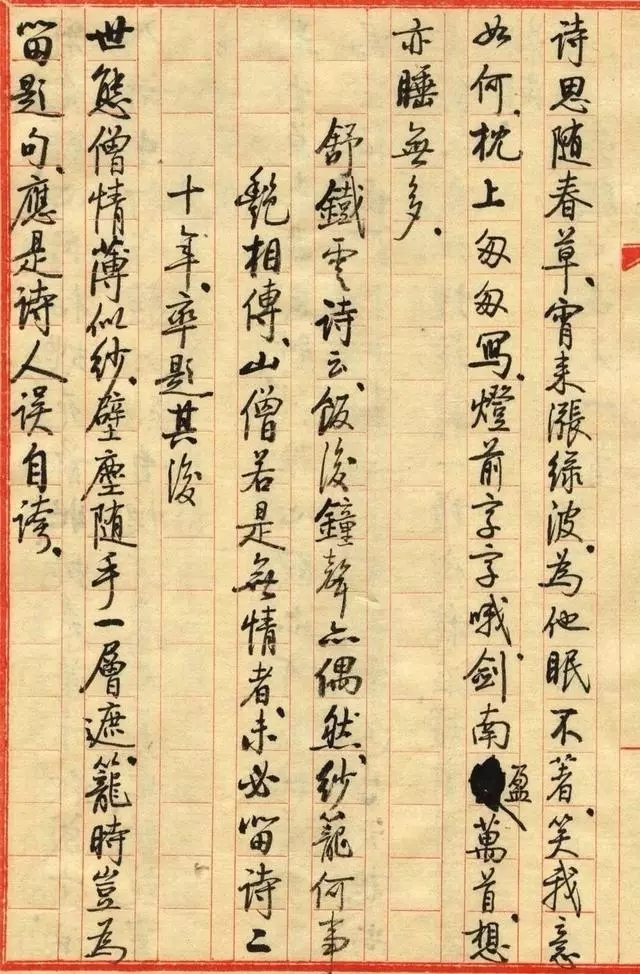 诗思随春草、宵来漲绿波、為他眠不著、笑我意
如何、枕上匆匆写、燈前字字哦、剑南盈萬首、想
亦睡無多、
舒鐵雲诗云、飯後鐘聲亦偶然、纱籠何事
艷相傳、山僧若是無情者、未必留诗二
十年、率題其後
世態僧情薄似纱、壁塵随手一層遮、籠時豈為
留題句、應是诗人误自誇、